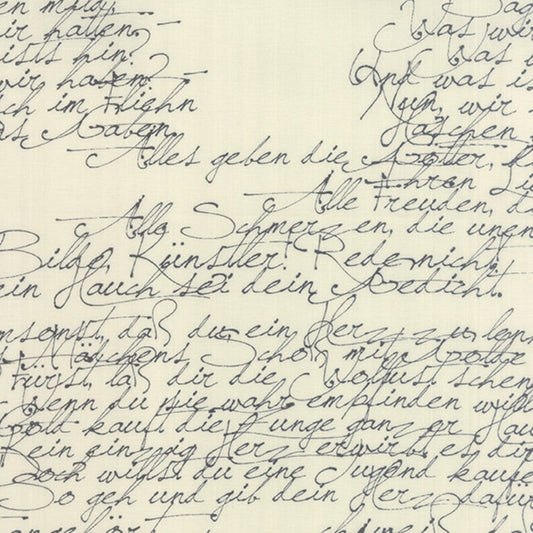 en müd,
ir hatten,
ists hin.
wir haben?
ch im Fliehn
as Haben.
Sag
Was wir
Was w
And was is
Nun, wir
Haschen
Alles geben die Götter,
Ihren Li
Alle Freuden, d
Alle Schmerzen, die unen
Bilde, Künstler! Rede nicht!
ein Hauch sei dein Gedicht.
msonst, daß du, ein Herz zu lenn
Mädchens Schoß mit Golde
Fürst, laß dir die Wollust schen
Wenn du sie wahr empfinden will
Gold kauft die Zunge ganzer Hau
Kein einzig Herz erwirbt es dir
Doch willst du eine Tugend kaufe
So geh und gib dein Herz dafür